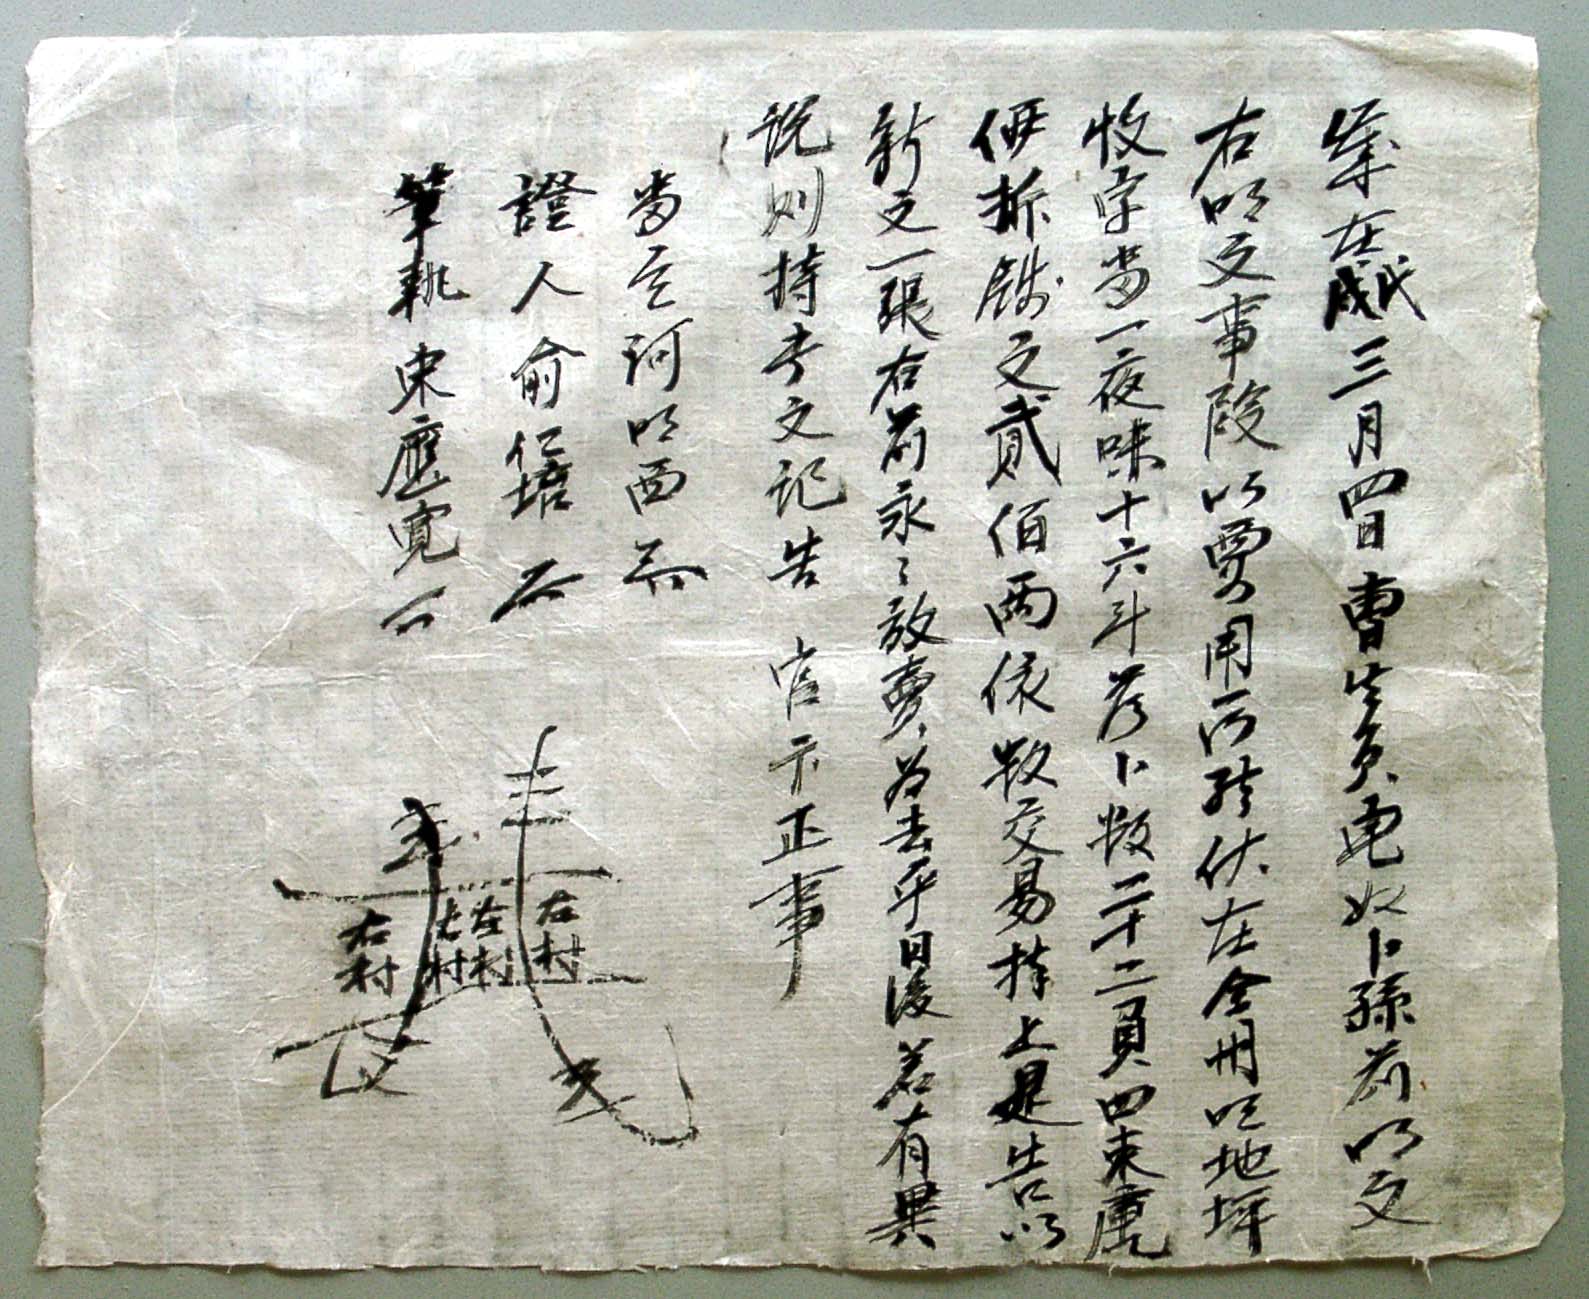 歲在戊戌三月四日曹生員宅奴卜孫前明文
右明文事段以要用所致伏在金州吐地坪
收字畓一夜味十六斗落卜數二十二負四束庫
価折錢文貳佰兩依數交易捧上是告以
新文一張右前永〻放賣為去乎日後若有異
說則持此文記告 官卞正事
畓主河明西
證人俞仁培
筆執宋應寬
右村
左村
右村